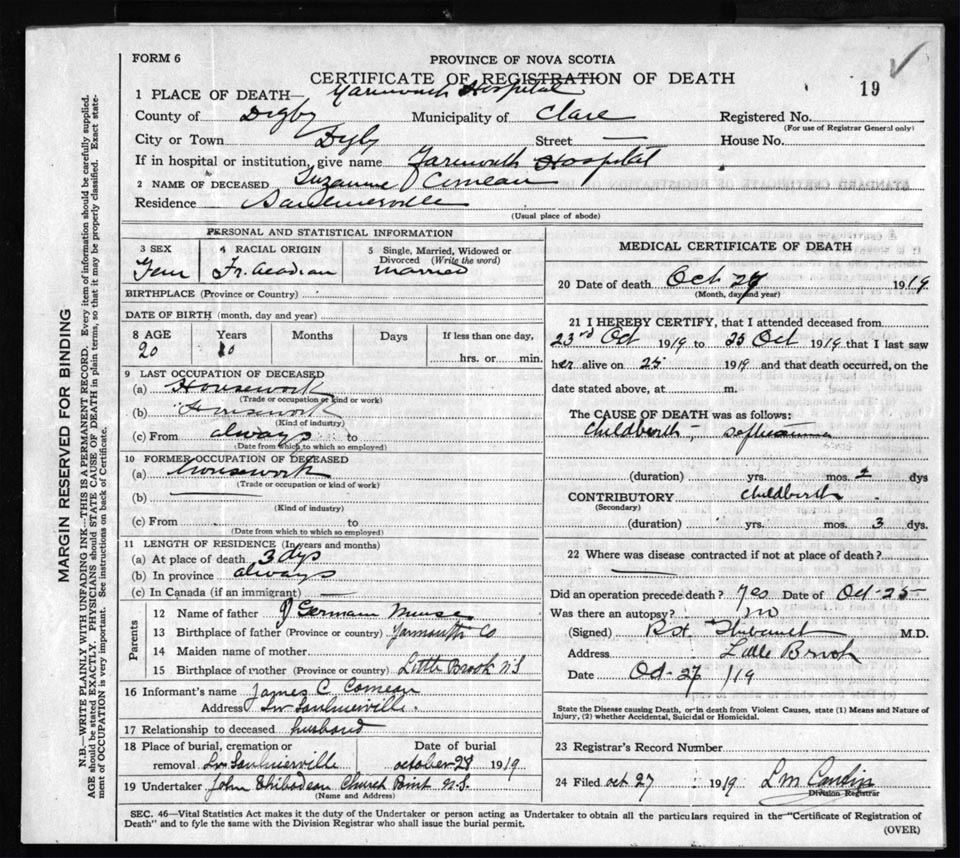 FORM 6
PROVINCE OF NOVA SCOTIA
CERTIFICATE OF REGISTRATION OF DEATH
19
1 PLACE OF DEATH— Yarmouth Hospital
County of Digby Municipality of Clare Registered No.
(For use of Registrar General only)
City or Town Street — House No.
If in hospital or institution, give name Yarmouth Hospital
2 NAME OF DECEASED Suzanne Comeau
Residence Saulnierville
(Usual place of abode)
PERSONAL AND STATISTICAL INFORMATION
3 SEX 4 RACIAL ORIGIN 5 Single, Married, Widowed or Divorced (Write the word)
Fem Fr. Acadian married
BIRTHPLACE (Province or Country)
DATE OF BIRTH (month, day and year)
8 AGE Years Months Days If less than one day,
20 hrs. or min.
9 LAST OCCUPATION OF DECEASED
(a) Housework
(Trade or occupation or kind or work)
(b) Housework
(Kind of industry)
(c) From always to
(Date from which to which so employed)
10 FORMER OCCUPATION OF DECEASED
(a) housework
(Trade or occupation or kind of work)
(b)
(Kind of industry)
(c) From to
(Date from which to which so employed)
11 LENGTH OF RESIDENCE (In years and months)
(a) At place of death 3 dys
(b) In province always
(c) In Canada (if an immigrant) —
Parents
12 Name of father J Germain Muise
13 Birthplace of father (Province or country) Yarmouth Co
14 Maiden name of mother
15 Birthplace of mother (Province or country) Little Brook N S
16 Informant's name James C Comeau
Address Lw Saulnierville.
17 Relationship to deceased husband
18 Place of burial, cremation or removal Lw Saulnierville
Date of burial october 28 1919
19 Undertaker John Thibodeau Church Point N.S.
(Name and Address)
MEDICAL CERTIFICATE OF DEATH
20 Date of death Oct 1919
(Month, day and year)
21 I HEREBY CERTIFY, that I attended deceased from
23rd Oct 1919 to 25 Oct 1919 that I last saw
her alive on 25 1919 and that death occurred, on the
date stated above, at m.
The CAUSE OF DEATH was as follows:
Childbirth - 
(duration) yrs. mos. dys
CONTRIBUTORY Childbirth
(Secondary)
(duration) yrs. mos. 3 dys.
22 Where was disease contracted if not at place of death?
Did an operation precede death? Yes Date of Oct-25-
Was there an autopsy? no
(Signed) Thibault M.D.
Address Little Brook
Date Oct-27 /19
State the Disease causing Death, or in death from Violent Causes, state (1) Means and Nature of
Injury, (2) whether Accidental, Suicidal or Homicidal.
23 Registrar's Record Number
24 Filed oct 27 1919 L M
Division Registrar
SEC. 46—Vital Statistics Act makes it the duty of the Undertaker or person acting as Undertaker to obtain all the particulars required in the "Certificate of Registration of
Death" and to fyle the same with the Division Registrar who shall issue the burial permit.
(OVER)
MARGIN RESERVED FOR BINDING
N.B.—WRITE PLAINLY WITH UNFADING INK—THIS IS A PERMANENT RECORD. Every item of information should be carefully supplied.
AGE should be stated EXACTLY. PHYSICIANS should STATE CAUSE OF DEATH in plain terms, so that it may be properly classified. Exact state-
ment of OCCUPATION is very important. See instructions on back of Certificate.